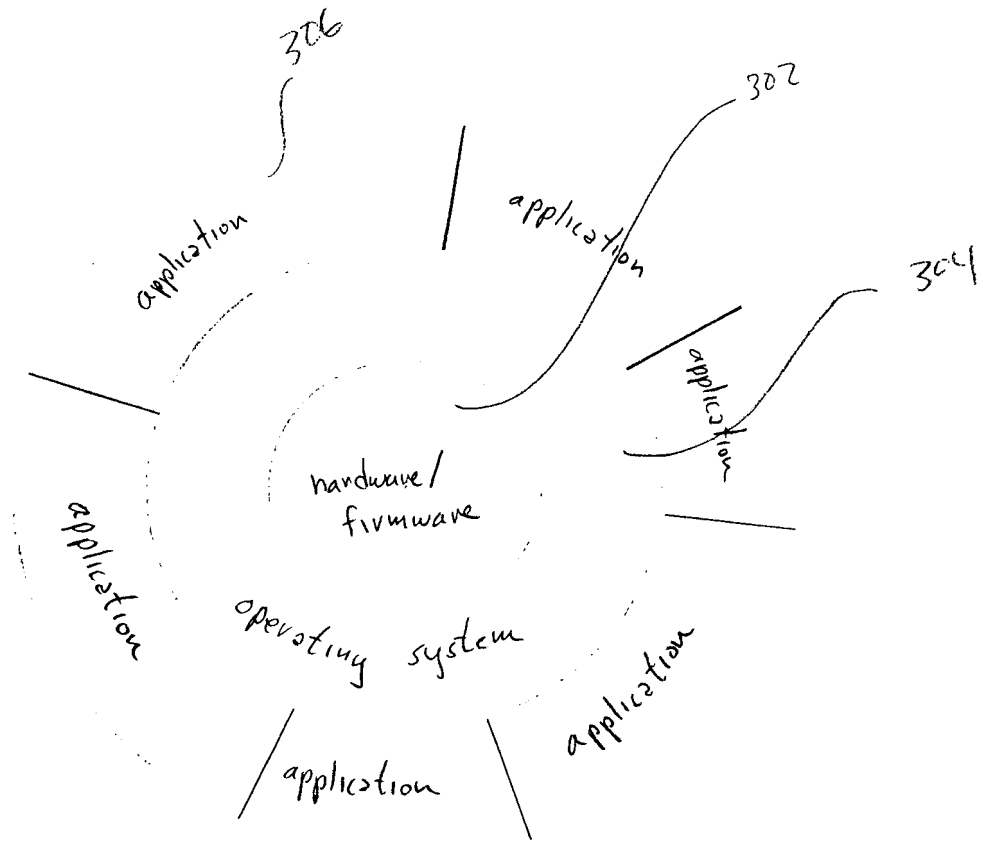 306
302
application
application
304
application
hardware/
firmware
application
operating system
application
application